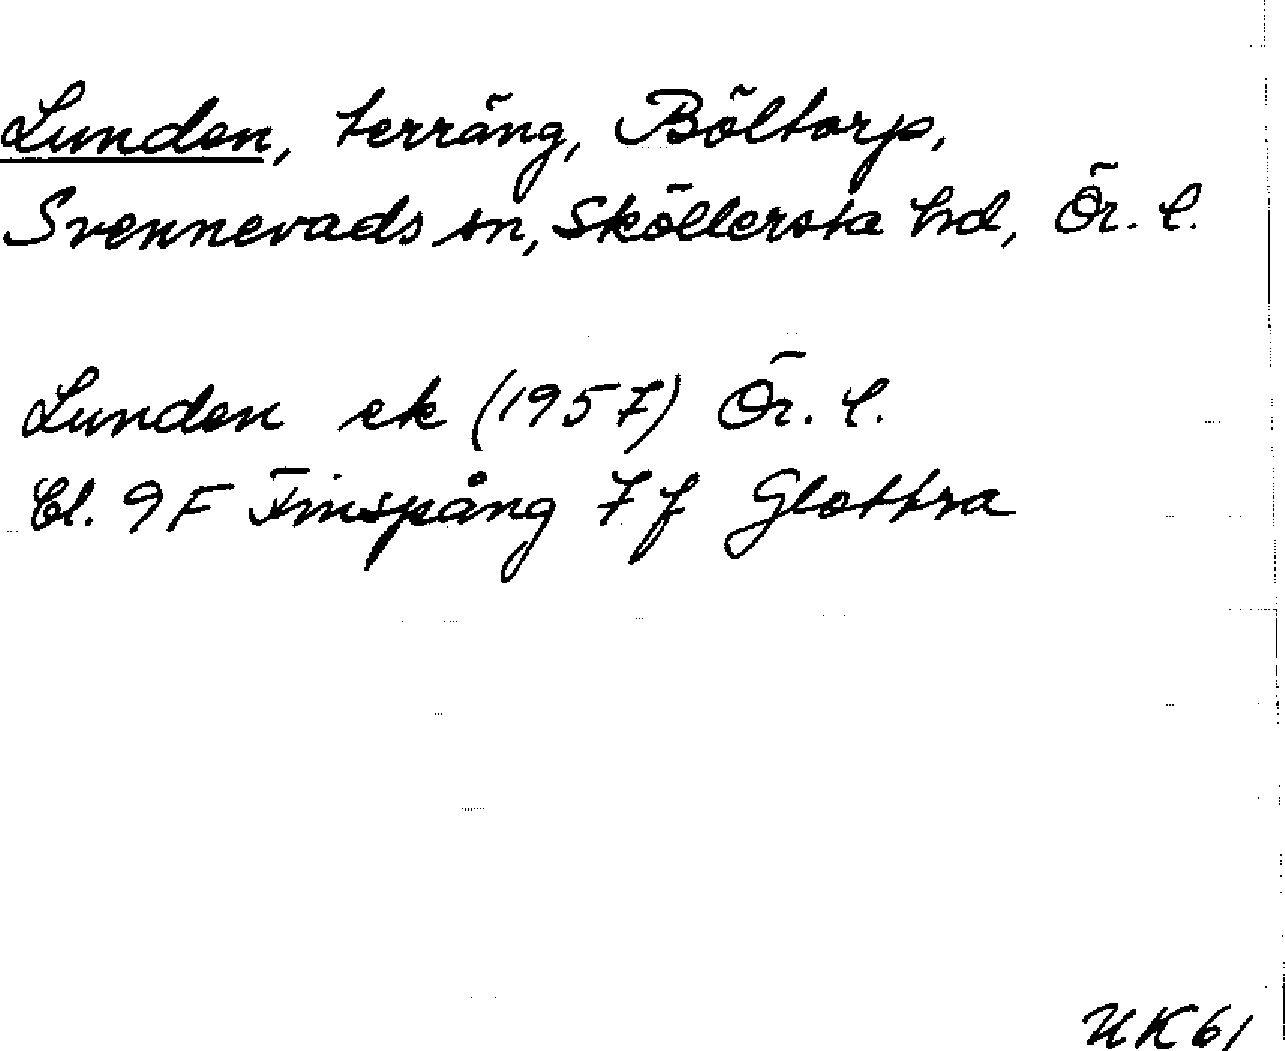 Lunden, terräng, Böltorp,
Svennevads sn, Sköllersta hd, Ör. l.
Lunden ek (1957) Ör. l.
Bl. 9F Finspång 7f Glottra
UK61